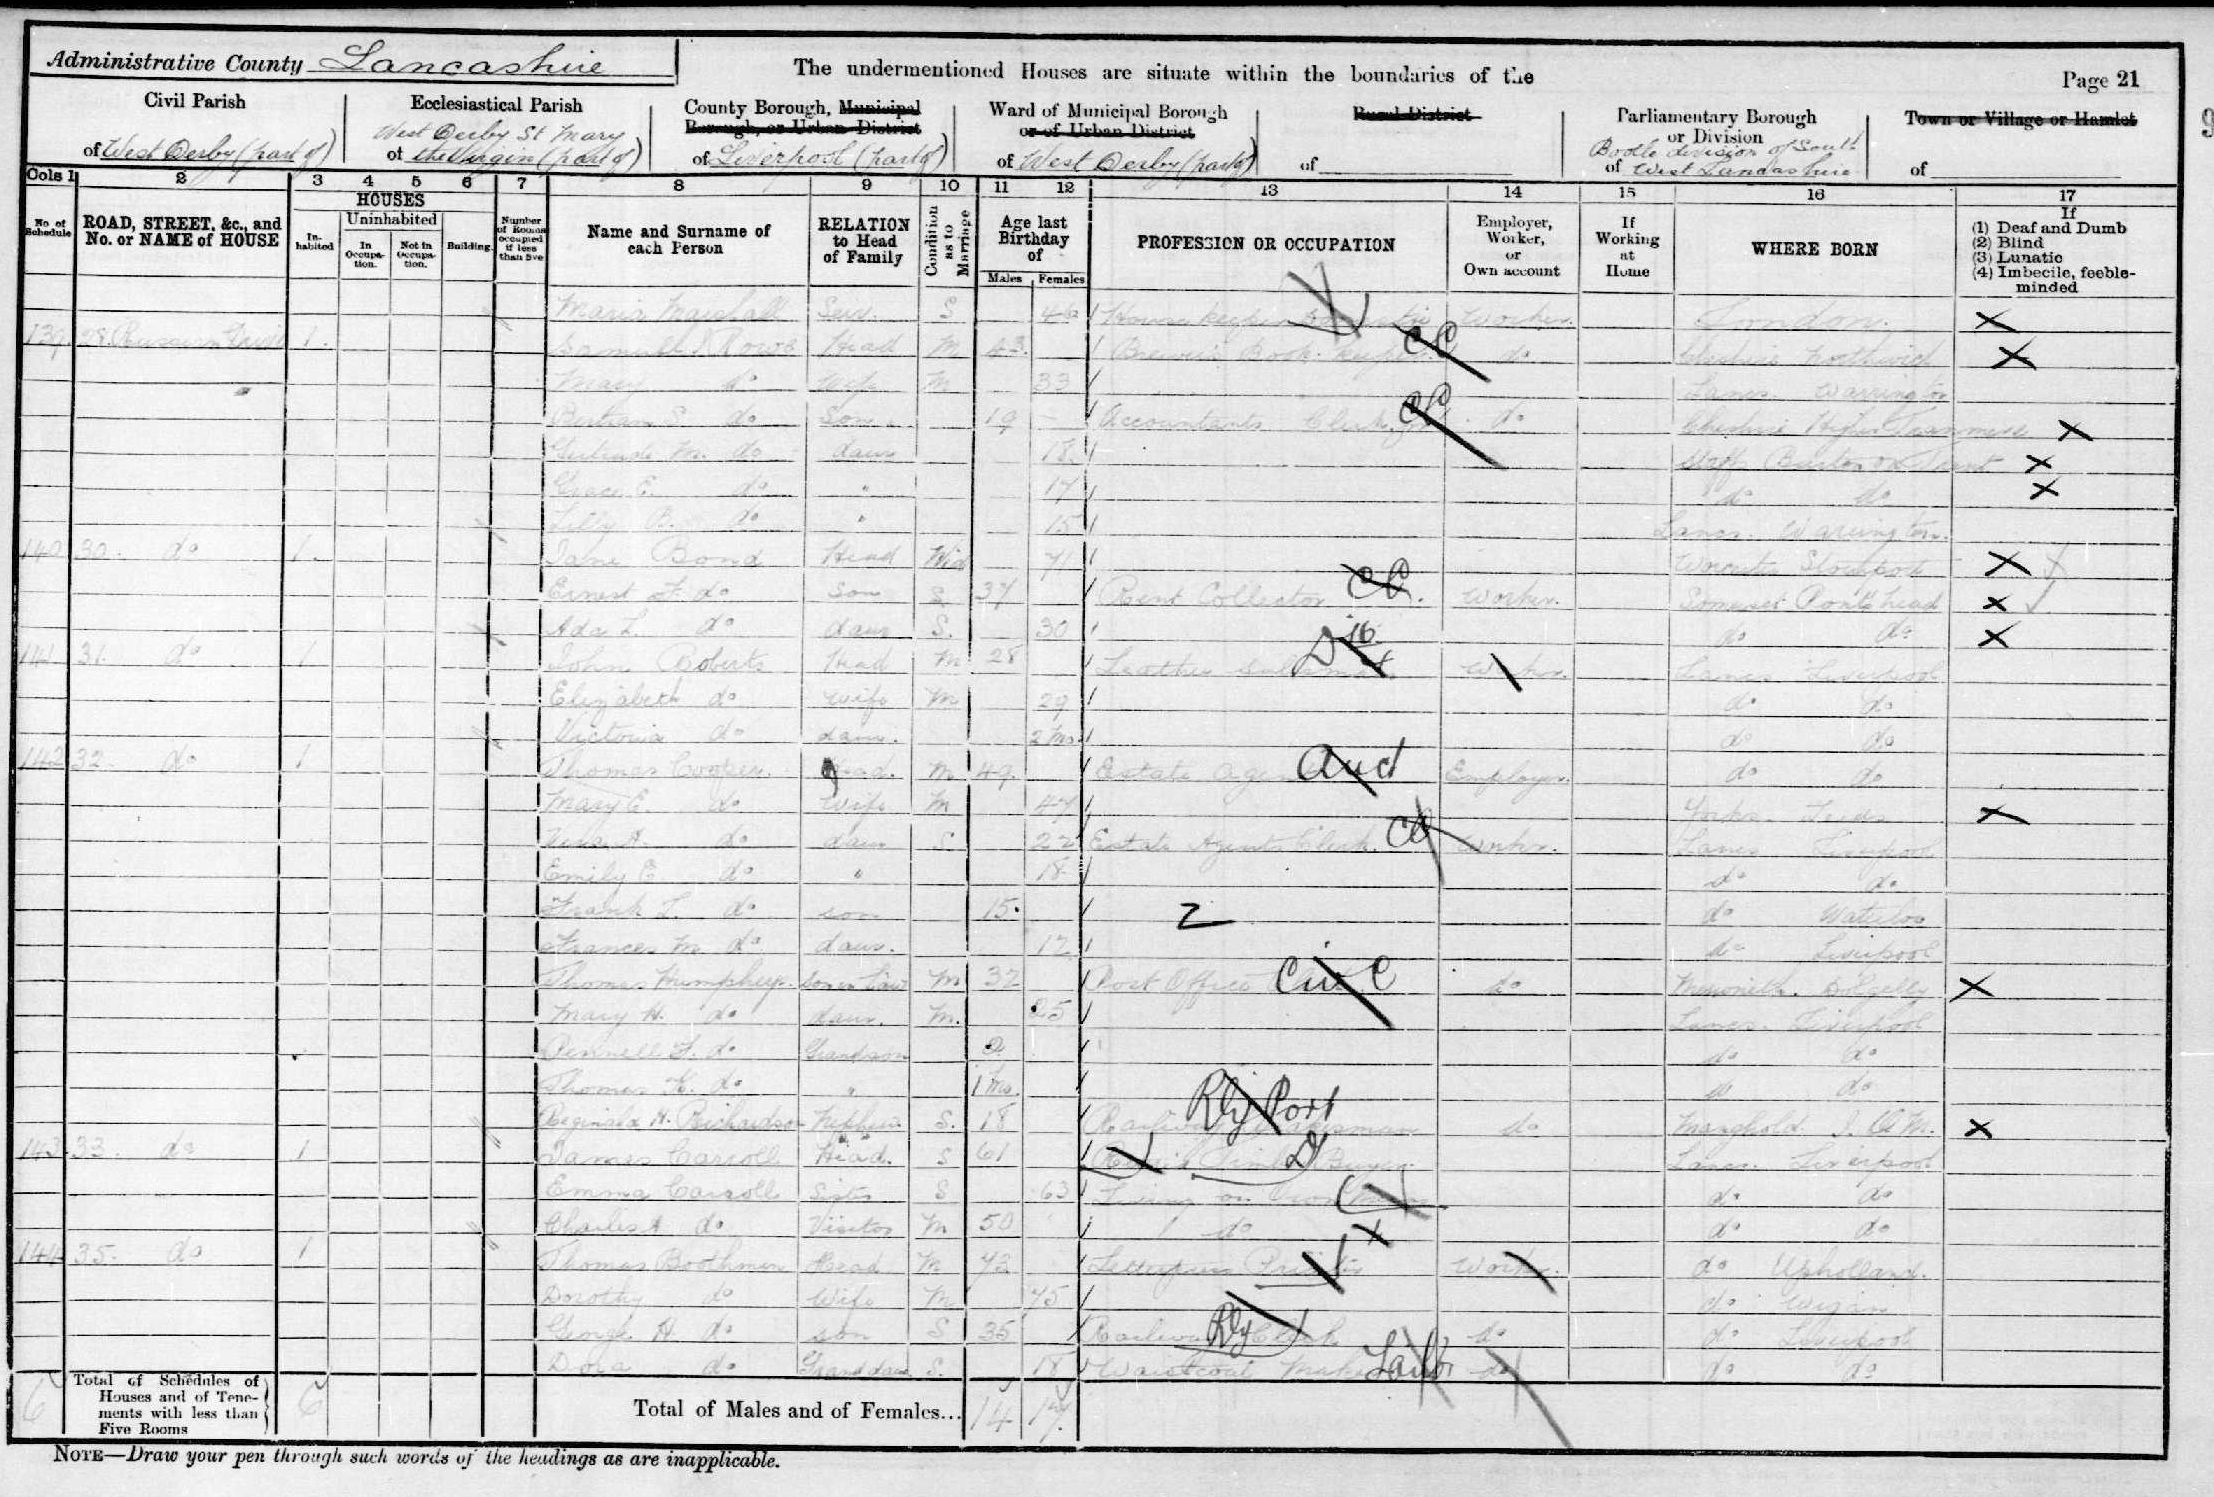 Administrative County Lancashire
The undermentioned Houses are situate within the boundaries of the
Page 21
Civil Parish
of West Derby (part of)
Ecclesiastical Parish
West Derby St Mary
of the Virgin (part of)
County Borough, Municipal
Borough, or Urban District
of Liverpool (part of)
Ward of Municipal Borough
or of Urban District
of West Derby (part of)
Rural District
of
Parliamentary Borough
or Division
Bootle division of South
of West Lancashire
Town or Village or Hamlet
of
Cols 1 2 3 4 5 6 7 8 9 10 11 12 13 14 15 16 17
No. of Schedule
ROAD, STREET, &c., and No. or NAME of HOUSE
HOUSES
In-habited
Uninhabited
In Occupa-tion.
Not in Occupa-tion.
Building.
Number of Rooms occupied if less than five
Name and Surname of each Person
RELATION to Head of Family
Condition as to Marriage
Age last Birthday of
Males Females
PROFESSION OR OCCUPATION
Employer, Worker, or Own account
If Working at Home
WHERE BORN
If
(1) Deaf and Dumb
(2) Blind
(3) Lunatic
(4) Imbecile, feeble-minded
Maria Marshall Serv. S 46 Housekeeper Worker. London.
139. 28. 1. Samuel Rowe Head M 43. Brewer's Book keeper CC do Cheshire Northwich
Mary do Wife M 33 Lancs Warrington
Bertram S do Son 19 Accountants Clerk CC do Cheshire Higher Tranmere
Gertrude M. do daur 18. Staff Burton on Trent
Grace E. do " 17 do do
Lilly do " 15 Lancs. Warrington.
140 30. do 1. Jane Bond Head Wid 71 Worcester Stourport
Ernest F. do Son S 37 Rent Collector CC. Worker. Somerset Portishead
Ada L. do daur S. 30 do do
141 31. do 1 John Roberts Head M 28 Leather Salesman Worker. Lancs Liverpool
Elizabeth do wife M 29 do do
Victoria do daur. 2 Mo. do do
142 32. do 1 Thomas Cooper. Head. M. 49. Estate Agent Auct Employer. do do
Mary E. do Wife M 47 Yorks. Leeds
do daur S. 22 Estate Agents Clerk. CC Worker. Lancs Liverpool
Emily E do " 18 do do
Frank L. do son 15. 2 do Waterloo
Frances M do daur. 12 do Liverpool
Thomas Humphreys. Son in Law M 32 Post Office Civ C do Merioneth. Dolgelly
Mary H. do daur. M. 25 Lancs. Liverpool
Pennell F. do Grandson 2 do do
Thomas K. do " 1 Mo. do
Reginald H. Richardson Nephew S. 18 Railway Rly Port do Maughold I.O.M.
143. 33. do 1 James Carroll Head. S 61 Timber Buyer. Lancs. Liverpool
Emma Carroll Sister S 63 Living on own do do
Charles A do Visitor M 50 do do do
144 35. do 1 Thomas Boothman Head M 72 Letterpress Printer Worker. do Upholland.
Dorothy do Wife M 75 do Wigan
George H do son S 35 Railway Clerk Rly do do Liverpool
Dora do Granddaur S. 18 Waistcoat Maker Tailor do do do
6
Total of Schedules of Houses and of Tene-ments with less than Five Rooms
6
Total of Males and of Females... 14 17.
NOTE—Draw your pen through such words of the headings as are inapplicable.